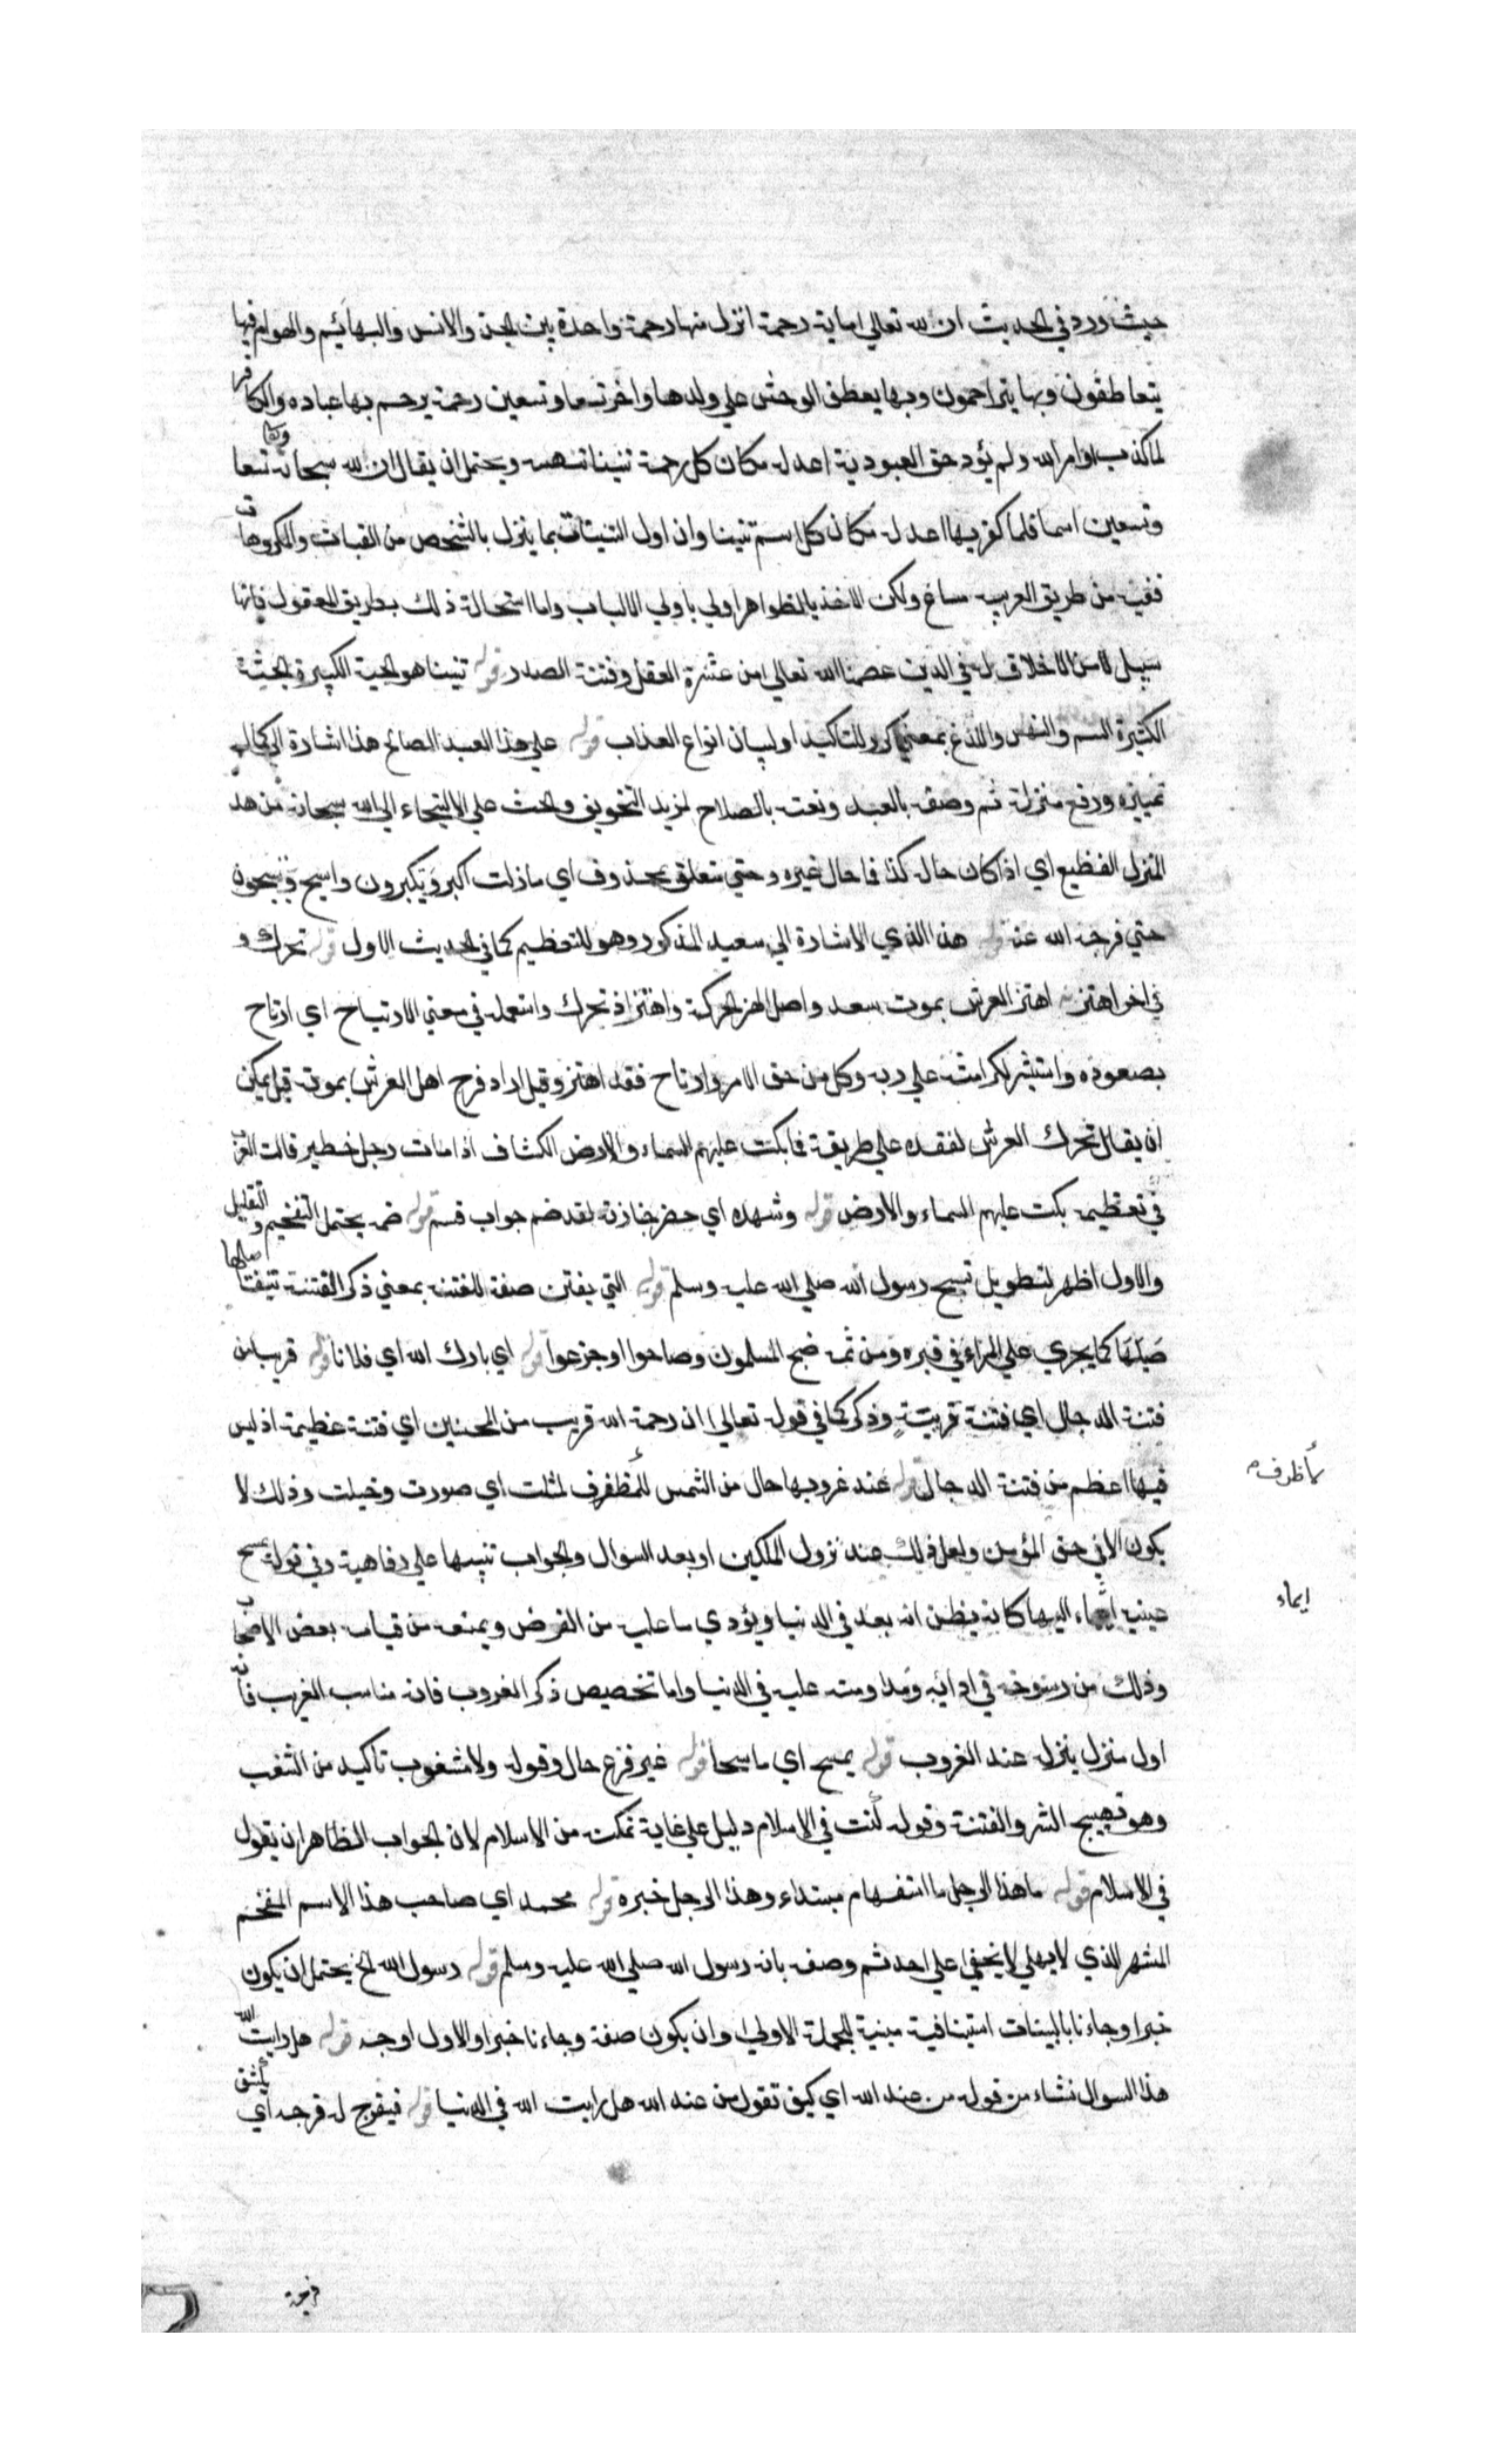 حيث ورد في الحديث ان لله تعالي اماية رحمة انزل منها رحمة واحدة بين الجن والانس والبهائم والهوام فبها
يتعاطفون وبها يتراحمون وبها يعطف الوحش علي ولدها واخر تسعا وتسعين رحمة يرحم بها عباده والكافر
لما كذب اوامر الله ولم يؤد حق العبودية اعد له مكان كل رحمة تنينا تنهسه ويحتمل ان يقال ان لله سبحانه تسعا
وتسعين اسما فلما كفر بها اعد له مكان كل اسم تنينا وان اول التنينات بما ينزل بالشخص من التبعات والمكروهات
ففيه من طريق العربية مساغ ولكن الاخذ بالظواهر اولي باولي الالباب واما استحالة ذلك بطريق المعقول فانها
سبيل من لا خلاق له في الدين عصمنا الله تعالي من عثرة العقل وفتنة الصدر قوله تنينا هو الحية الكبيرة الجثة
الكثيرة السم والنهس واللدغ بمعني كرر للتاكيد او لبيان انواع العذاب قوله علي هذا العبد الصالح هذا اشارة الي كمال
تمييزه ورفع منزلة ثم وصفه بالعبد ونعته بالصلاح لمزيد التخويف والحث علي الالتجاء الي الله سبحانه من هذا
المنزل الفظيع اي اذا كان حاله كذا فما حال غيره وحتي متعلق بمحذوف اي مازلت اكبر ويكبرون واسبح ويسبحون
حتي فرجه الله عنه قوله هذا الذي الاشارة الي سعيد المذكور وهو للتعظيم كما في الحديث الاول قوله تحرك و
في اخر اهتز اهتز العرش بموت سعد واصل الهز الحركة واهتز اذ تحرك واستعمله في معني الارتياح اي ارتاح
بصعوده واستبشر لكرامته علي ربه وكل من خف الامر وارتاح فقد اهتز وقيل اراد فرح اهل العرش بموته قيل يمكن
ان يقال تحرك العرش لفقده علي طريقة فما بكت عليهم السماء والارض الكشاف اذا مات رجل خطير قالت العرب
في تعظيمه بكت عليهم السماء والارض قوله وشهده اي حضر جنازته لقد ضم جواب قسم قوله ضمه يحتمل التفخيم والتقليل
والاول اظهر لتطويل تسبيح رسول الله صلي الله عليه وسلم قوله التي يفتن صفة للفتنة بمعني ذكر الفتنة تتيفتا صلها
صلها كما يجري علي المراء في قبره ومن ثمه ضج المسلمون وصاحوا وجزعوا قوله اي بارك الله اي فلانا قوله قريبا من
فتنة الدجال اي فتنة قريبة وذكر كما في قوله تعالي ان رحمة الله قريب من المحسنين اي فتنة عظيمة اذ ليس
فيها اعظم من فتنة الدجال قوله عند غروبها حال من الشمس للمظفرف لمثلت اي صورت وخيلت وذلك لا
يكون الا في حق المؤمن ولعل ذلك عند نزول الملكين او بعد السوال والجواب تنبيها علي رفاهية وفي قوله يمسح
عينيه ايماء اليها كانه يظن انه بعد في الدنيا ويؤدي ما عليه من الفرض ويمنعه من قيامه بعض الاصحاب
وذلك من رسوخه في ادائه ومداومته عليه في الدنيا واما تخصيص ذكر الغروب فانه مناسب الغريب فانه
اول منزل ينزله عند الغروب قوله يمسح اي ماسحا قوله غير فزع حال وقوله ولا مشغوب تاكيد من الشغب
وهو تهييج الشر والفتنة وقوله كنت في الاسلام دليل علي غاية تمكنه من الاسلام لان الجواب الظاهر ان يقول
في الاسلام قوله ما هذا الرجل ما استفهام مبتداء وهذا الرجل خبره قوله محمد اي صاحب هذا الاسم المفخم
المشهر الذي لا يهلي لا يخفي علي احد ثم وصفه بانه رسول الله صلي الله عليه وسلم قوله رسول الله الخ يحتمل ان يكون
خبرا وجاءنا بالبينات استينافية مبنية للجملة الاولي وان يكون صفة وجاءنا خبرا والاول اوجه قوله هل رايت الله
هذا السوال نشاء من قوله من عند الله اي كيف تقول من عند الله هل رايت الله في الدنيا قوله فيفرج له فرجه اي يشق
ايماء
فرجة